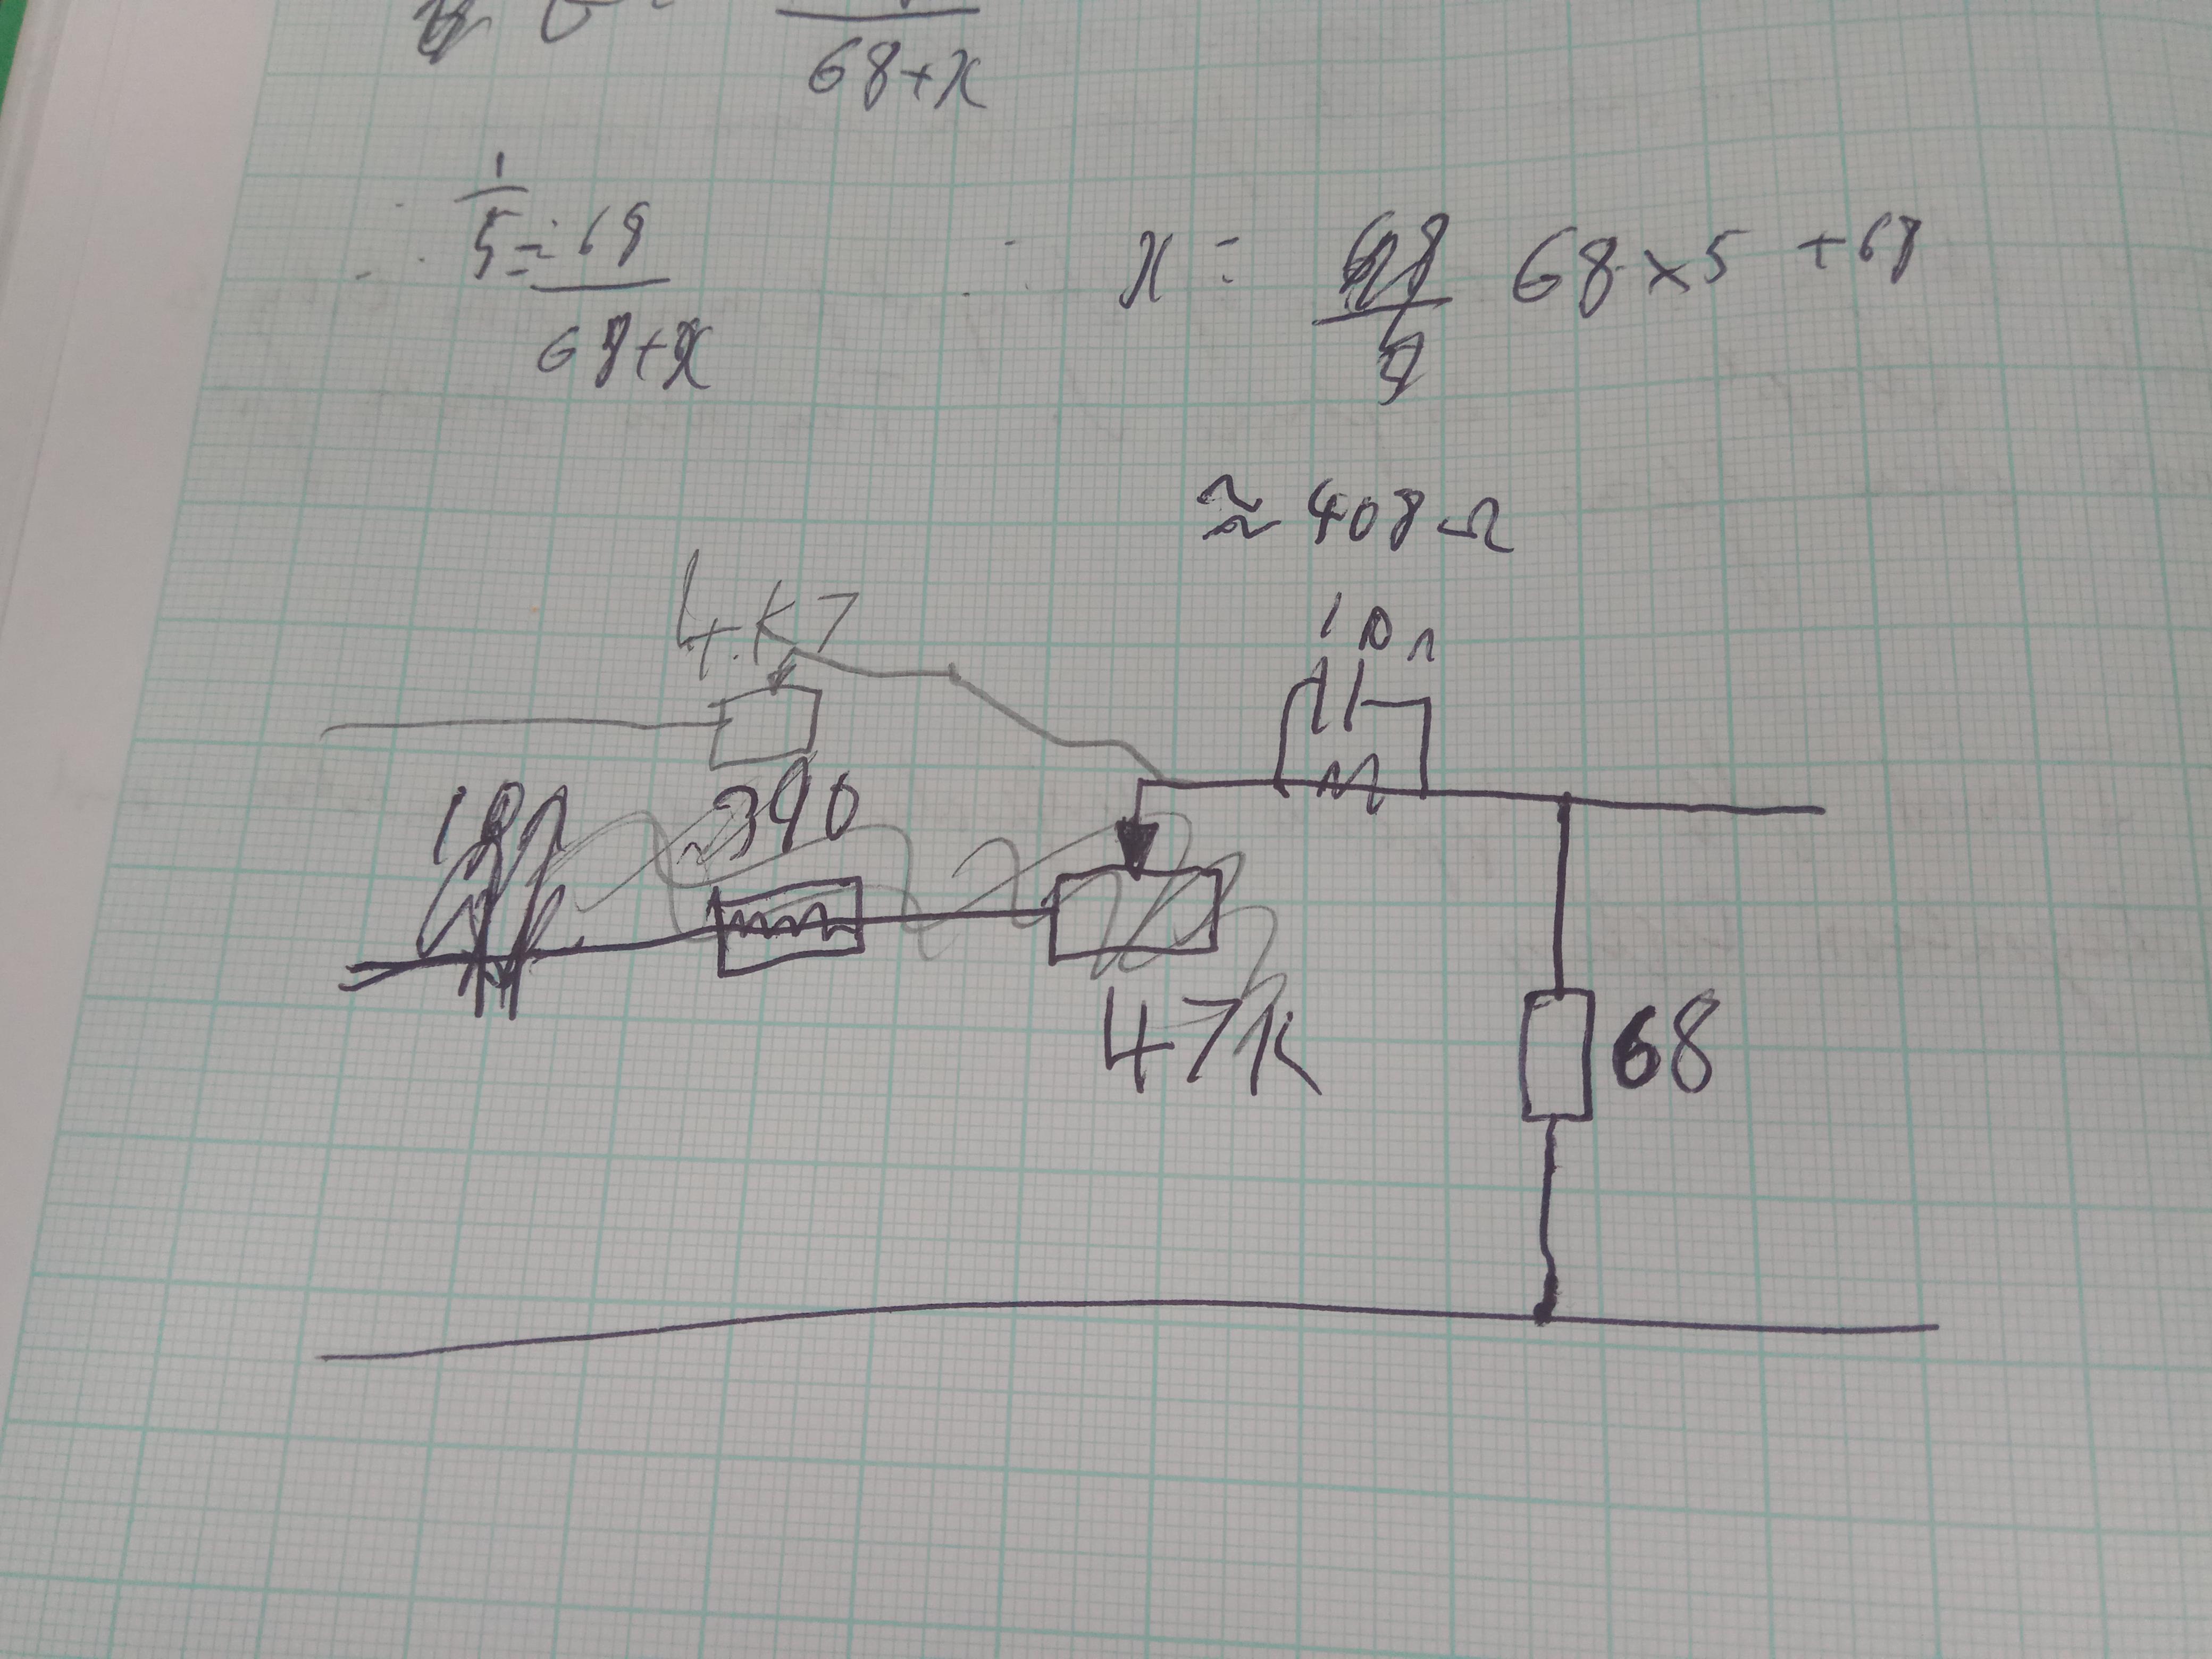 68+x
∴ 1/5 = 68/68+x ∴ x = 68×5 +68
≈ 408Ω
4.K7
10n
390
47k
68